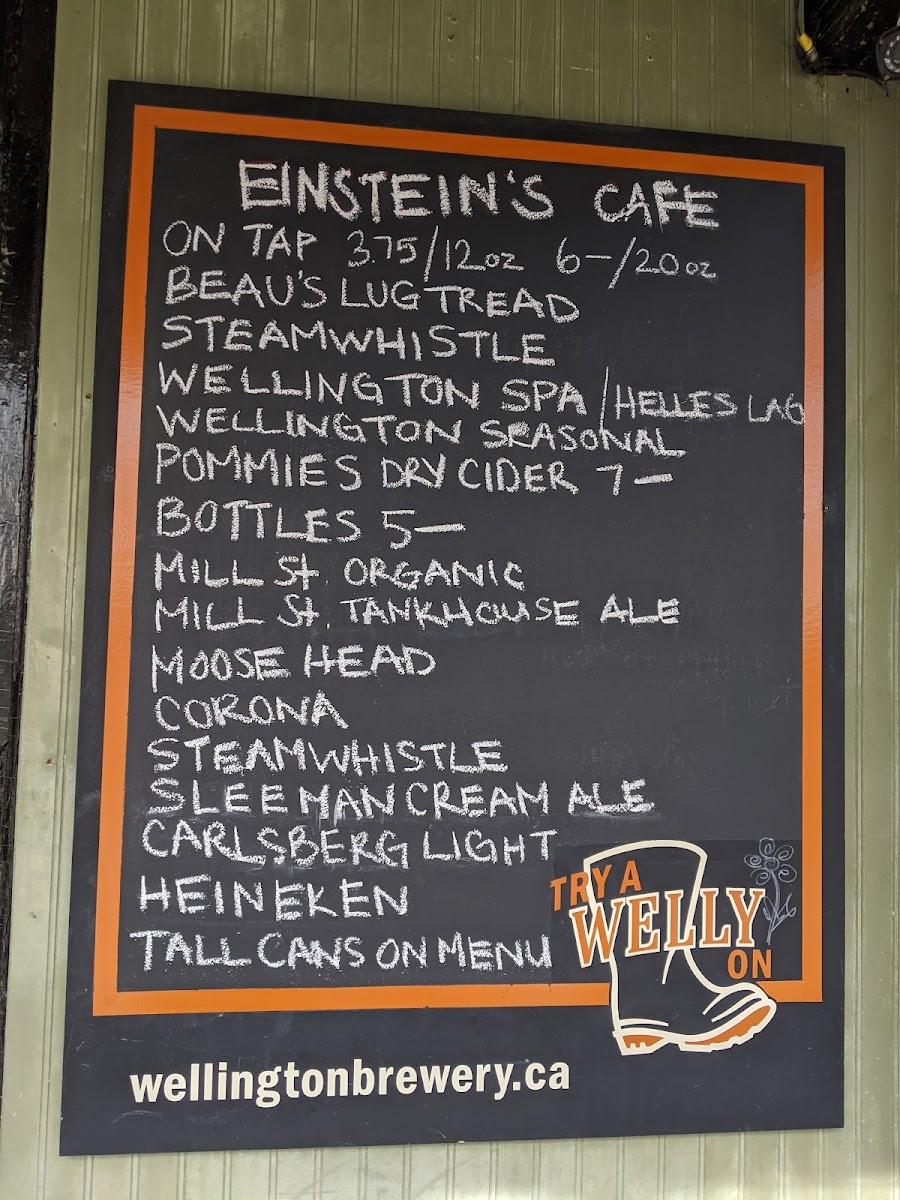 EINSTEIN'S CAFE
ON TAP 3.75/12oz 6—/20oz
BEAU'S LUG TREAD
STEAMWHISTLE
WELLINGTON SPA/HELLES LAG
WELLINGTON SEASONAL
POMMIES DRY CIDER 7—
BOTTLES 5—
MILL St. ORGANIC
MILL St. TANKHOUSE ALE
MOOSE HEAD
CORONA
STEAMWHISTLE
SLEEMAN CREAM ALE
CARLSBERG LIGHT
HEINEKEN
TALL CANS ON MENU
TRY A
WELLY
ON
wellingtonbrewery.ca